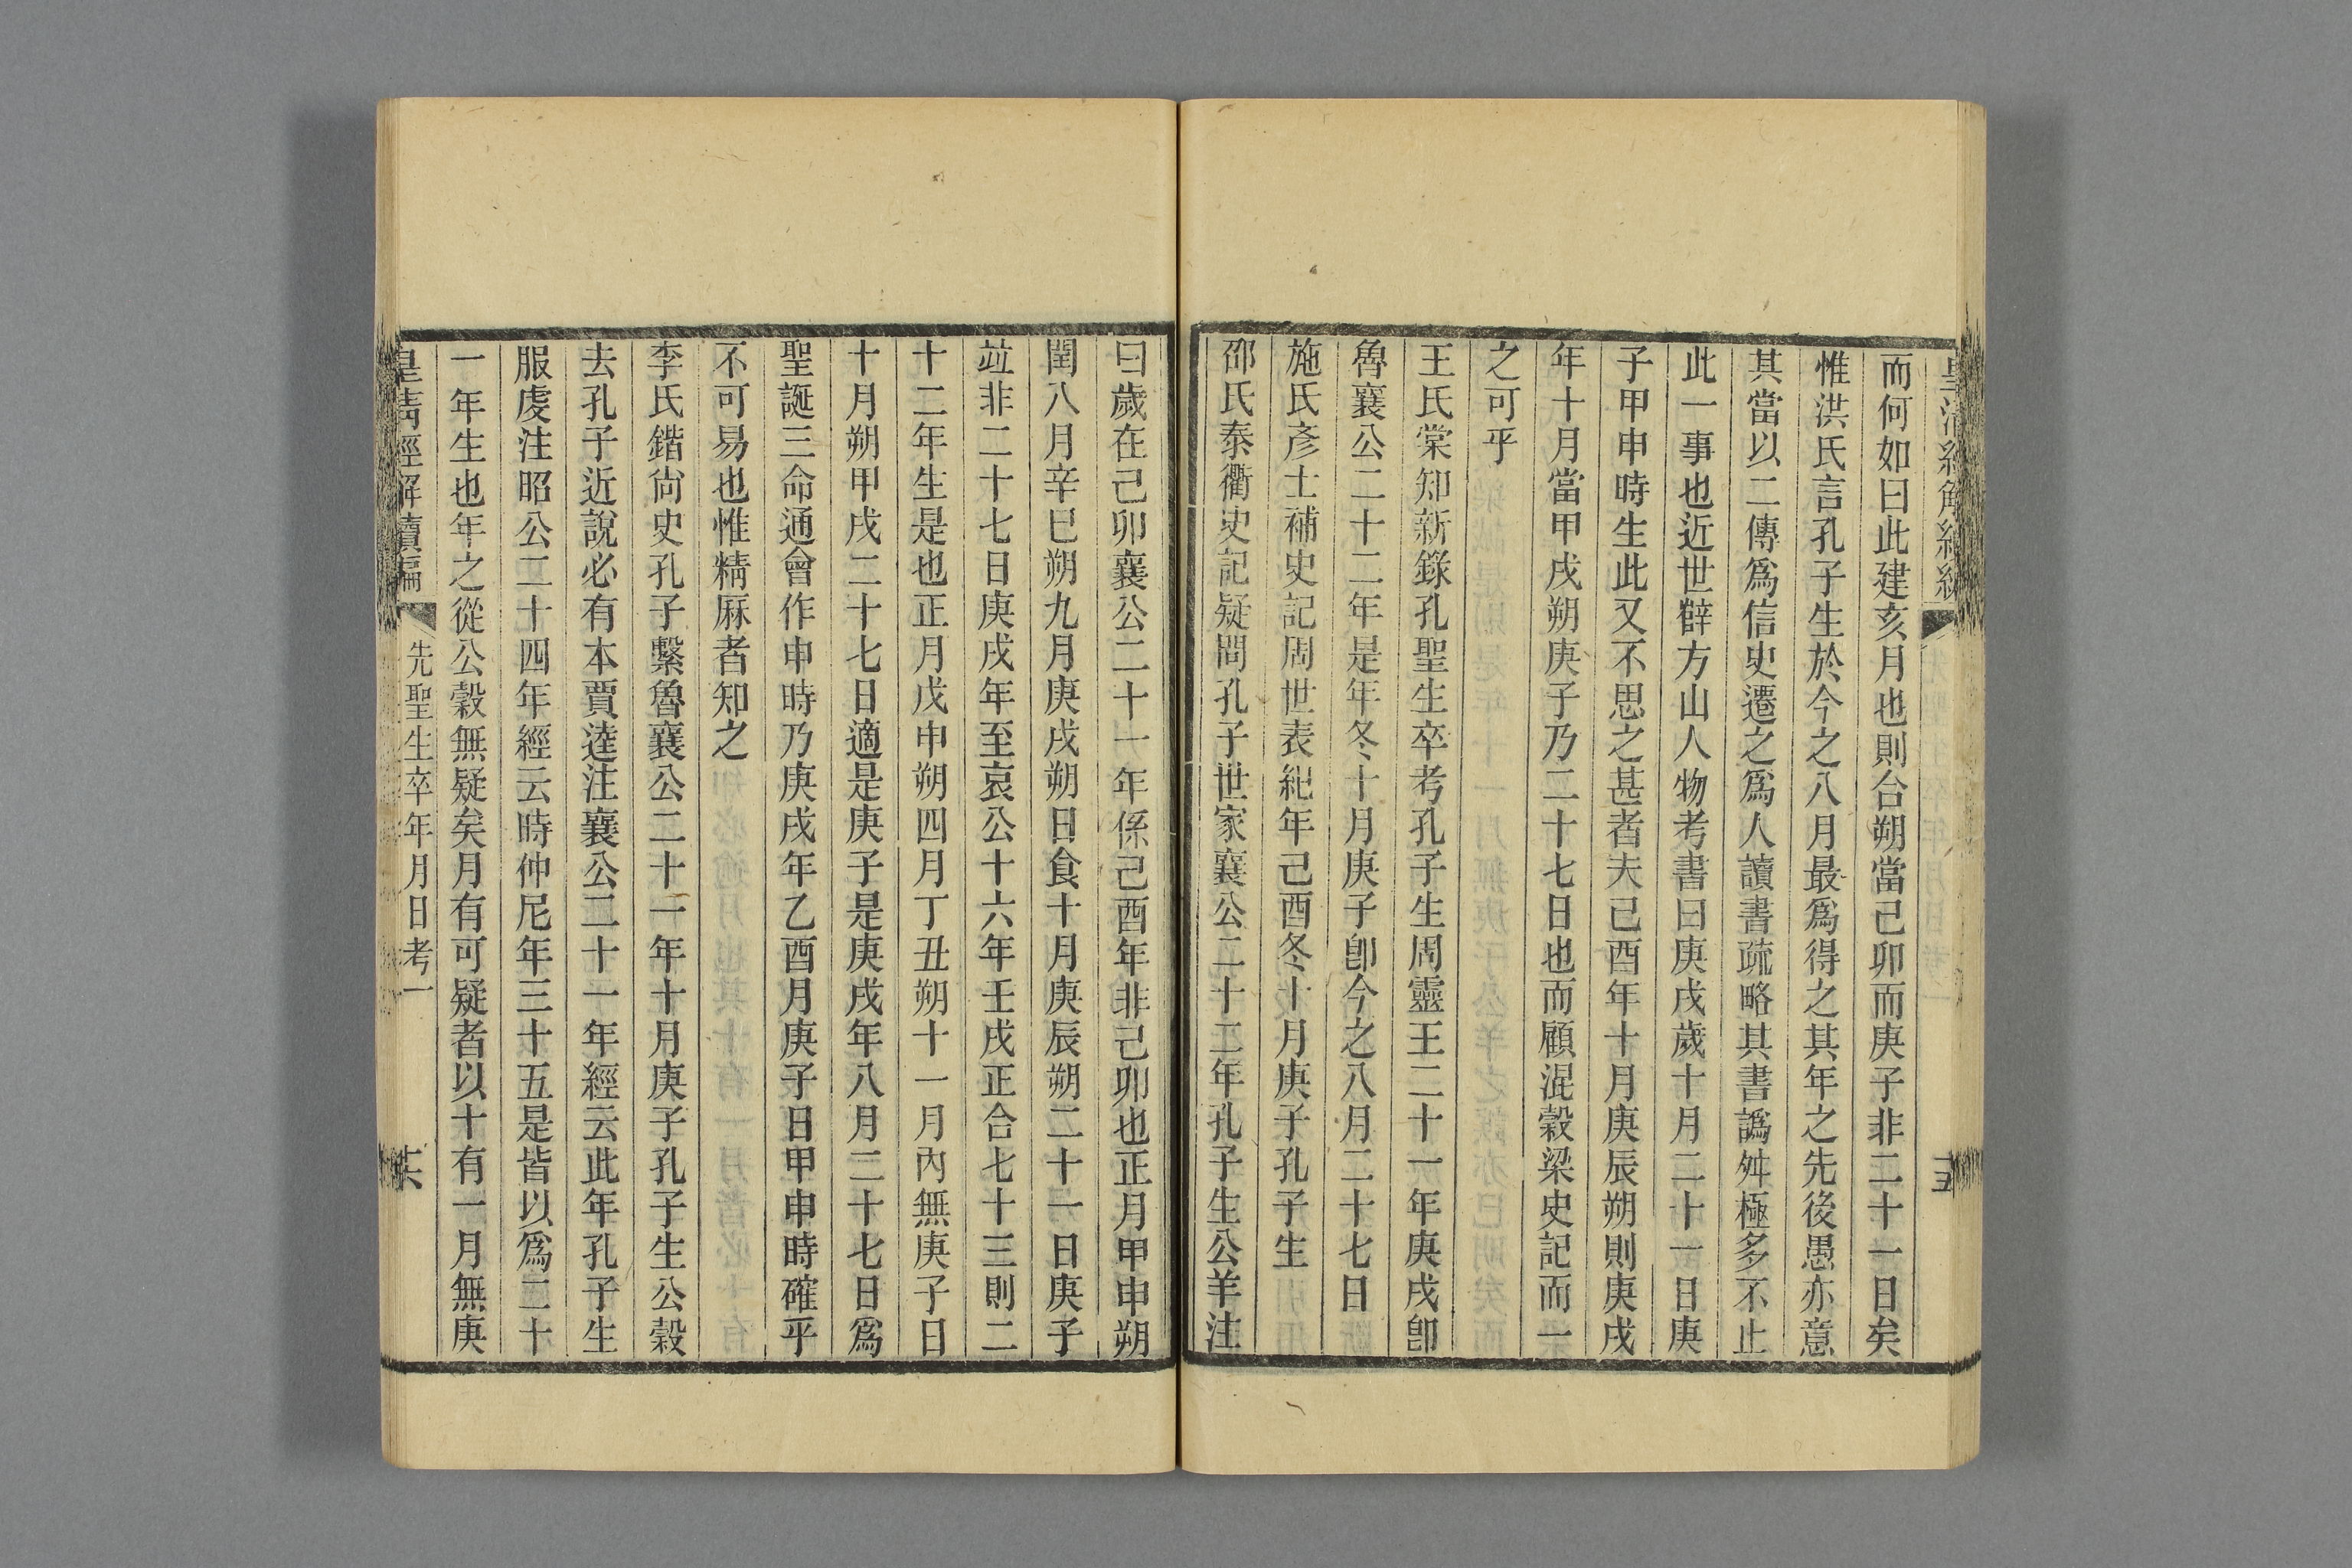 而何如曰此建亥月也則台朔當己卯而庚子非二十一日矣
惟洪氏言孔子生於今之八月最爲得之其年之先後愚亦意
其當以二傳爲信史遷之爲人讀書疏略其書譌舛極多不止
此一事也近世薛方山人物考書曰庚戌歲十月二十一日庚
子甲申時生此又不思之甚者夫己酉年十月庚辰朔則庚戌
年十月當甲戌朔庚子乃二十七日也而顧混穀梁史記而一
之可乎
王氏棠知新錄孔聖生卒考孔子生周靈王二十一年庚戌卽
魯襄公二十二年是年冬十月庚子卽今之八月二十七日
施氏彥士補史記周世表紀年己酉冬十月庚子孔子生
邵氏泰衢史記疑問孔子世家襄公二十二年孔子生公羊注
曰歲在己卯襄公二十一年係己酉年非己卯也正月甲申朔
閏八月辛巳朔九月庚戌朔日食十月庚辰朔二十一日庚子
竝非二十七日庚戌年至哀公十六年壬戌正合七十三則二
十二年生是也正月戊申朔四月丁丑朔十一月內無庚子日
十月朔甲戌二十七日適是庚子是庚戌年八月二十七日爲
聖誕三命通會作申時乃庚戌年乙酉月庚子日甲申時確乎
不可易也惟精厤者知之
李氏鍇尙史孔子繫魯襄公二十一年十月庚子孔子生公穀
去孔子近說必有本賈逵注襄公二十一年經云此年孔子生
服虔注昭公二十四年經云時仲尼年三十五是皆以爲二十
一年生也年之從公穀無疑矣月有可疑者以十有一月無庚
皇清經解續編
先聖生卒年月日考一